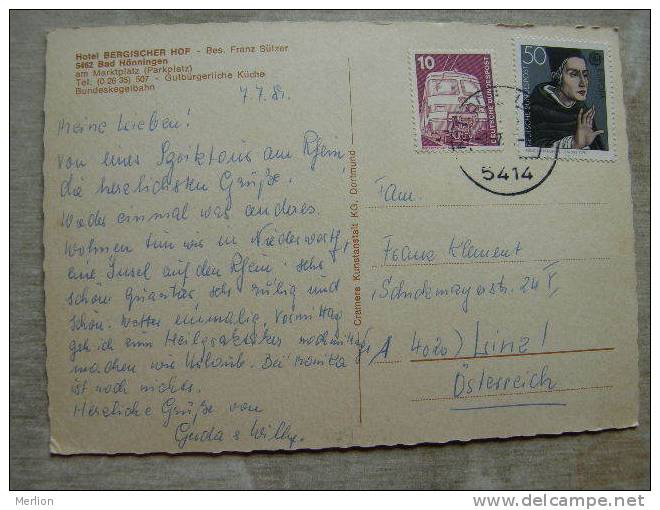 Hotel BERGISCHER HOF - Bes. Franz Sülzer
5462 Bad Hönningen
am Marktplatz (Parkplatz)
Tel. (0 26 35) 507 - Gutbürgerliche Küche
Bundeskegelbahn
7.7.81.
Meine Lieben!
Von einer am Rhein
die herzlichsten Grüße.
Wieder einmal was anderes.
Wohnen tun wir in Niederwerth,
eine Insel auf den Rhein. sehr
schön Quartier sehr ruhig und
schön. Wetter einmalig, Vormittag
geh ich zum Heilpraktiker nachmittags
machen wir Urlaub. Bei Monika
ist noch nichts.
Herzliche Grüße von
Gerda & Willy.
Cramers Kunstanstalt KG, Dortmund
10
DEUTSCHE BUNDESPOST
50
DEUTSCHE BUNDESPOST
5414
Fam.
Franz Klement
24
A 4020) Linz!
Österreich
Merlion
http://www.delcampe.net